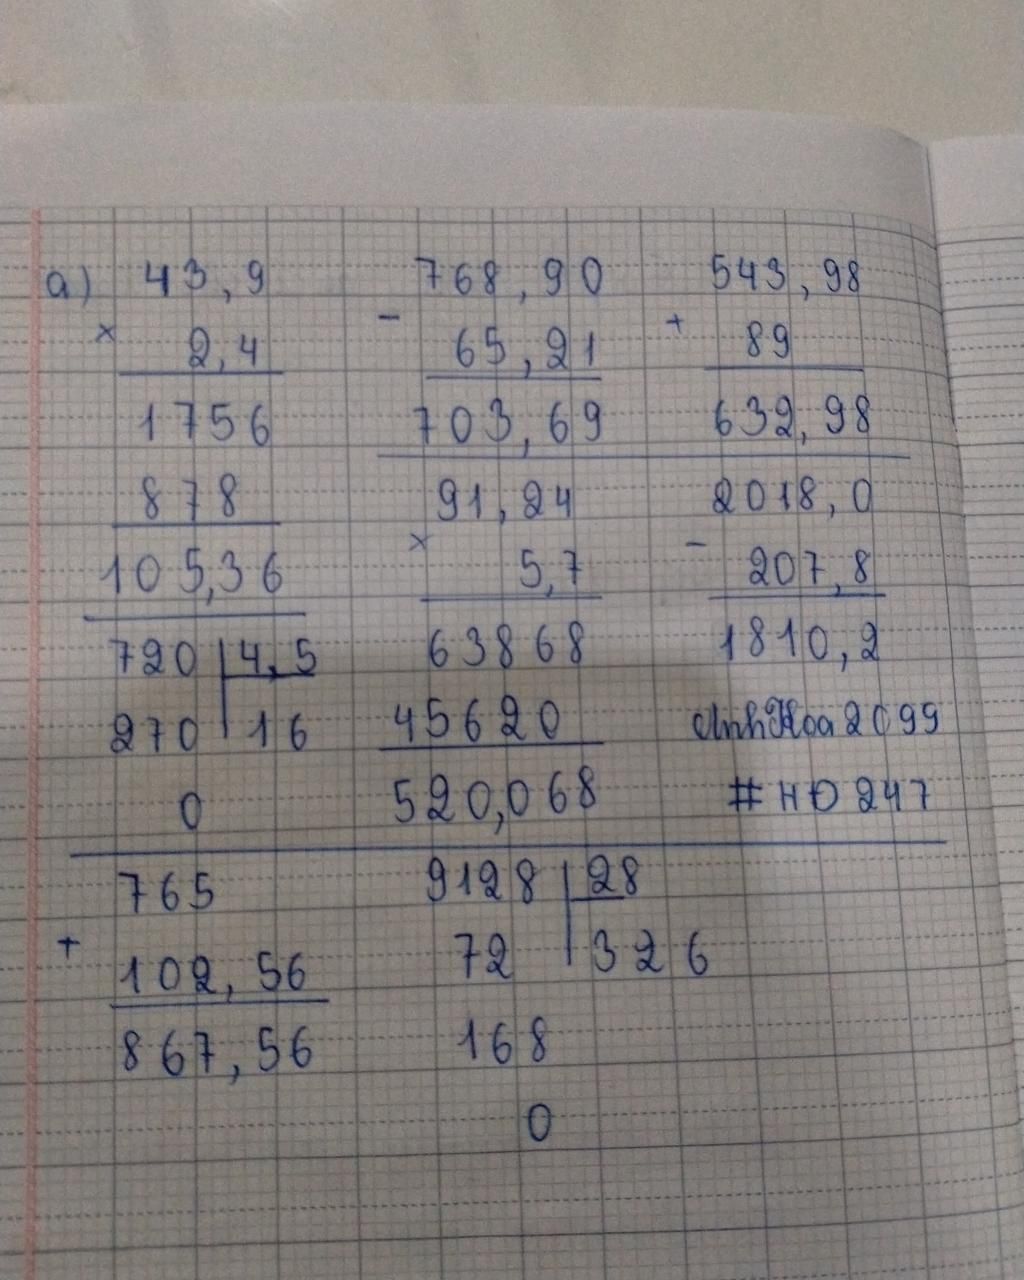 a) 43,9
×
2,4
1756
878
105,36
768,90
-
65,21
703,69
543,98
+
89
632,98
720 4,5
270 16
0
91,24
×
5,7
63868
45620
520,068
2018,0
-
207,8
1810,2
AnhHoa2099
#HD247
765
+
102,56
867,56
9128 28
72 326
168
0